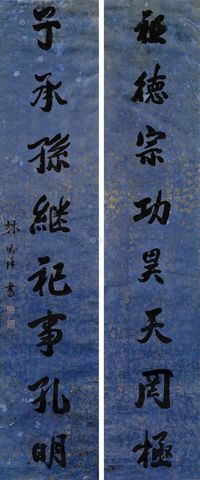 祖德宗功昊天罔極
子承孫繼祀事孔明